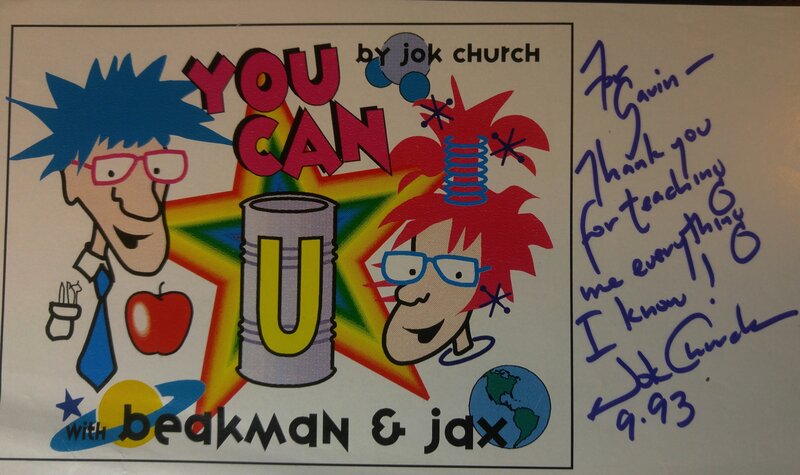 YOU CAN
by jok church
U
with beakman & jax
For
Gavin —
Thank you
for teaching
me everything
I know!
Jok Church
9.93